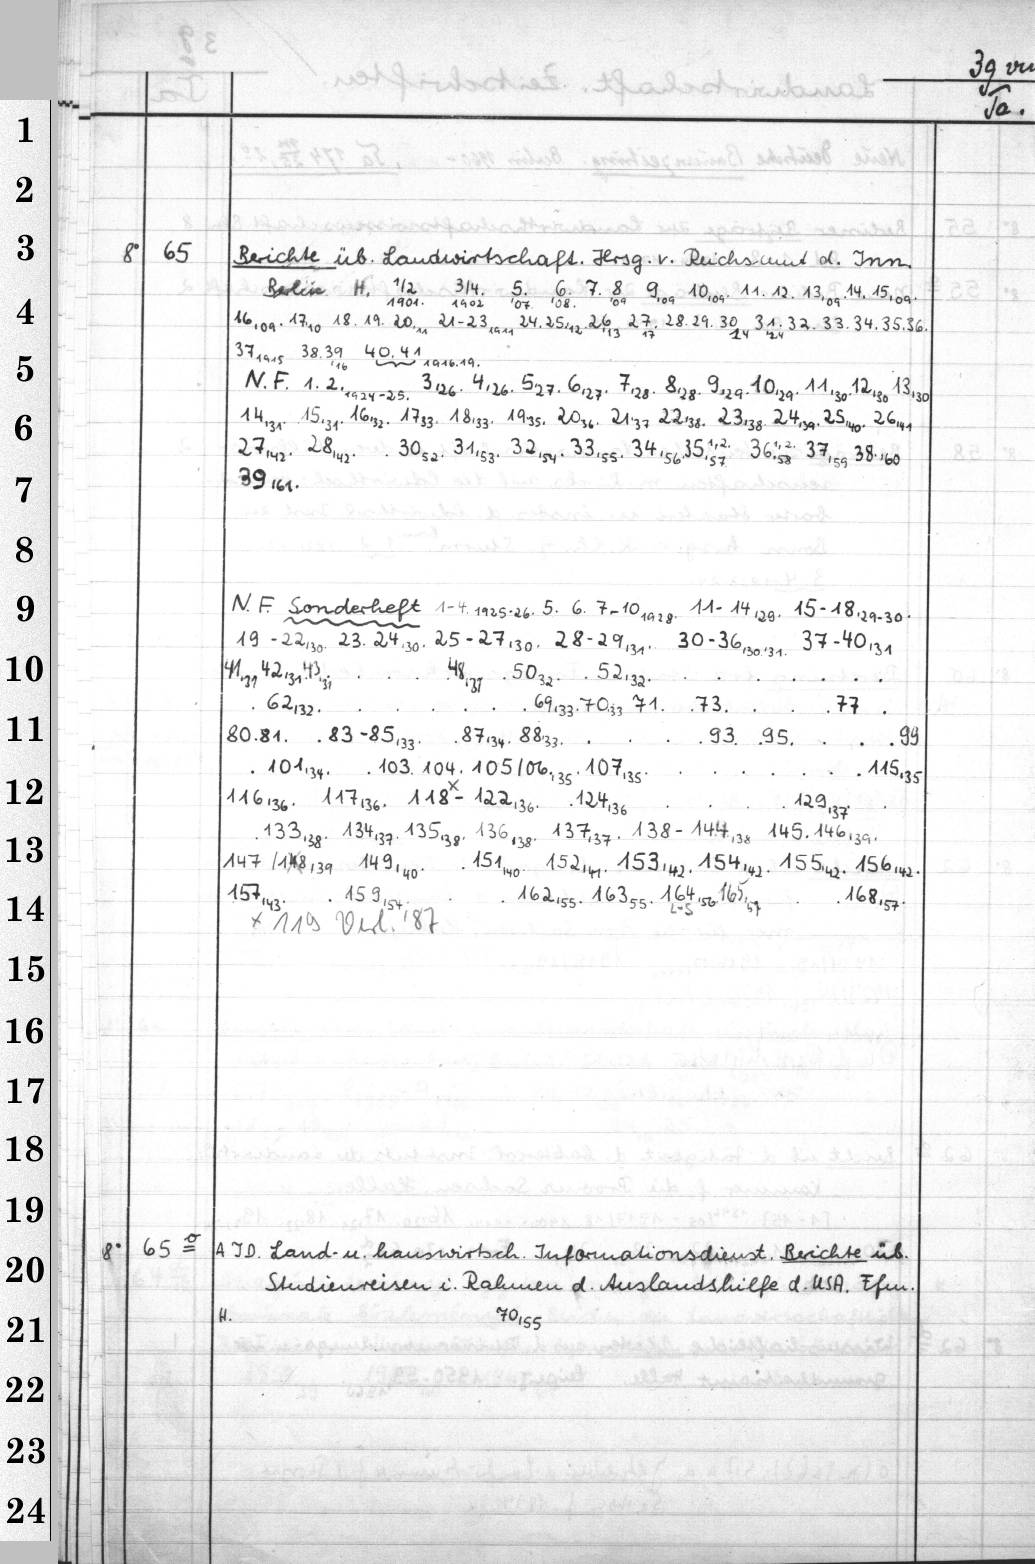 39 vu
Ta.
1
2
3
8° 65 Berichte üb. Landwirtschaft. Hrsg. v. Reichsamt d. Inn.
Berlin H. 1/2 1901. 3/4. 1902 5. '07 6. '08. 7. 8 '09 9,09 10,09. 11. 12. 13,09. 14. 15,09.
4
16,09. 17,10 18. 19. 20,11 21-23,1911 24. 25,12 26,13 27,17 28. 29. 30,24 31,24 32. 33. 34. 35. 36.
37,1915 38. 39,16 40. 41,1916.19.
5
N.F. 1. 2.,1924-25. 3,26. 4,26. 5,27. 6,27. 7,28. 8,28. 9,29. 10,29. 11,30. 12,30 13,30
6
14,31. 15,31. 16,32. 17,33. 18,33. 19,35. 20,36. 21,37 22,38. 23,38. 24,39. 25,40. 26,41
27,42. 28,42. . 30,52. 31,53. 32,54. 33,55. 34,56. 35,1,2.,57 36,1,2.,58 37,59 38,60
7
39,61.
8
9
N.F. Sonderheft 1-4. 1925-26. 5. 6. 7-10,1928. 11-14,29. 15-18,29-30.
19-22,30. 23. 24,30. 25-27,30. 28-29,31. 30-36,30.31. 37-40,31
10
41,31 42,31. 43,31 . . . 48,31 . 50,32 . 52,32. . . . . . . .
. 62,32. . . . . . . 69,33. 70,33 71. . 73. . . . 77 .
11
80. 81. . 83-85,33. . 87,34. 88,33. . . . . 93. .95. . . . 99
. 101,34. . 103. 104. 105/06,35. 107,35. . . . . . . . 115,35
12
116,36. 117,36. 118x-122,36. . 124,36 . . . . 129,37. .
. 133,38. 134,37. 135,38. 136,38. 137,37. 138-144,38 145. 146,39.
13
147/148,39 149,40. . 151,40 152,41. 153,42. 154,42. 155,42. 156,42.
157,43. . 159,54. . . 162,55. 163,55. 164,56. 165,57 . . 168,57.
14
x 119 Verl. '87
15
16
17
18
19
8° 65 A ID. Land- u. hauswirtsch. Informationsdienst. Berichte üb.
20
Studienreisen i. Rahmen d. Auslandshilfe d. USA. Ffm.
21
H. 70,55
22
23
24